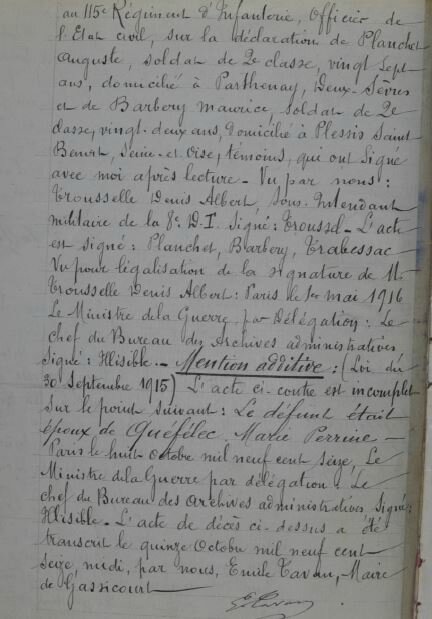 au 115e Régiment d'Infanterie, Officier de
l'Etat civil, sur la déclaration de Planchet
Auguste, soldat de 2e classe, vingt sept
ans, domicilié à Parthenay, Deux-Sèvres
et de Barbery Maurice, soldat de 2e
classe, vingt-deux ans, domicilié à Plessis Saint
Benoît, Seine-et-Oise, témoins, qui ont signé
avec moi après lecture - Vu par nous :
Trousselle Denis Albert, Sous-Intendant
militaire de la 8e D.I. Signé : Troussel - L'acte
est signé : Planchet, Barbery, Trabessac
Vu pour légalisation de la signature de M.
Trousselle Denis Albert : Paris le 1er mai 1916
Le Ministre de la Guerre par Délégation : Le
chef du Bureau des Archives administratives
Signé : Illisible. - Mention additive : (Loi du
30 Septembre 1915) L'acte ci-contre est incomplet
sur le point suivant : Le défunt était
époux de Quéfélec Marie Perrine -
Paris le huit Octobre mil neuf cent seize, Le
Ministre de la Guerre par délégation : Le
chef du Bureau des Archives administratives Signé :
Illisible - L'acte de décès ci-dessus a été
transcrit le quinze Octobre mil neuf cent
seize, midi, par nous, Emile Tavan, Maire
de Gassicourt
E. Tavan